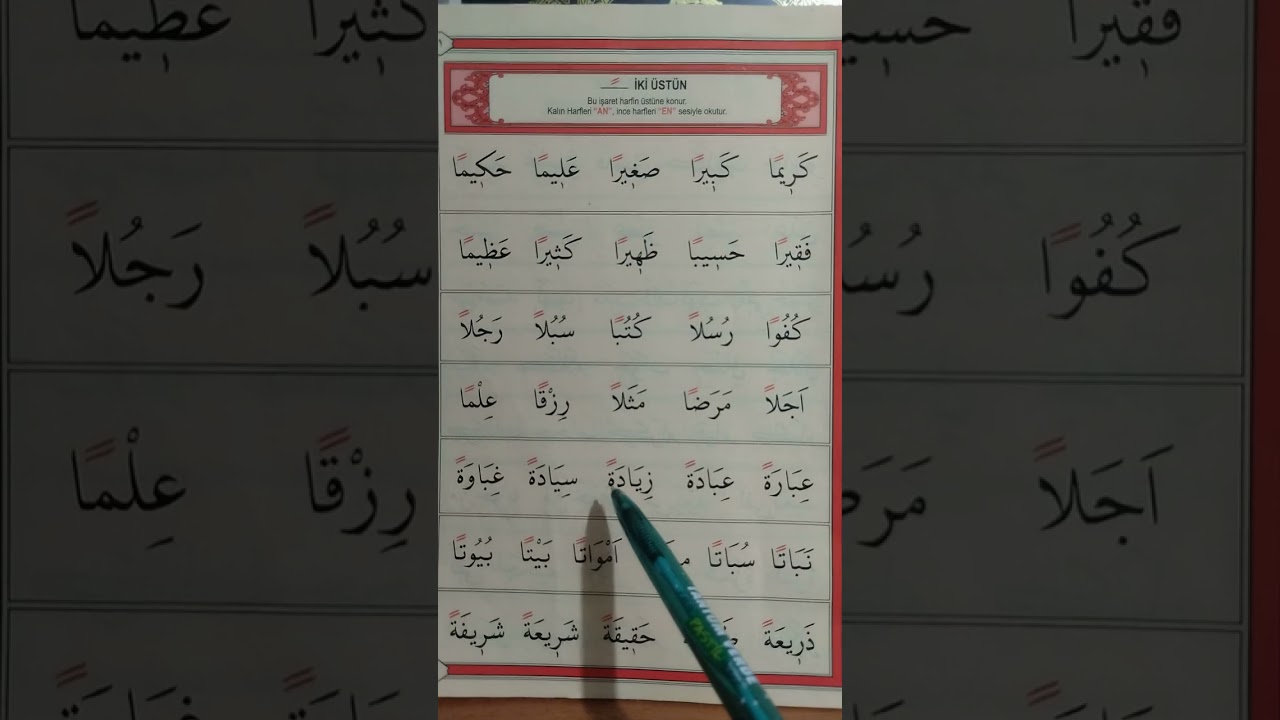 İKİ ÜSTÜN
Bu işaret harfin üstüne konur.
Kalın Harfleri "AN", ince harfleri "EN" sesiyle okutur.
كَرِيمًا كَبِيرًا صَغِيرًا عَلِيمًا حَكِيمًا
فَقِيرًا حَسِيبًا ظَهِيرًا كَثِيرًا عَظِيمًا
كُفُوًا رُسُلاً كُتُبًا سُبُلاً رَجُلاً
اَجَلاً مَرَضًا مَثَلاً رِزْقًا عِلْمًا
عِبَارَةً عِبَادَةً زِيَادَةً سِيَادَةً غِبَاوَةً
نَبَاتًا سُبَاتًا اَمْوَاتًا بَيْتًا بُيُوتًا
ذَرِيعَةً حَقِيقَةً شَرِيعَةً شَرِيفَةً